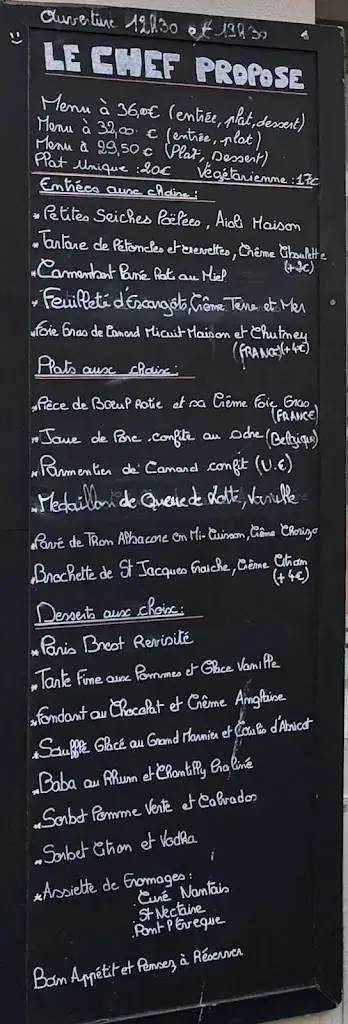 Ouverture 12h30 et 13h30
LE CHEF PROPOSE
Menu à 36,00€ (entrée, plat, dessert)
Menu à 32,00 € (entrée, plat)
Menu à 29,50 € (Plat, Dessert)
Plat Unique : 20€ Végétarienne : 17€
Entrées aux choix :
* Petites Seiches Poêlées, Aïoli Maison
* Tartare de Pétoncles et crevettes, Crème Ciboulette
(+2€)
* Camembert Pané Roti au Miel
* Feuilleté d'Escargots, Crème Terre et Mer
* Foie Gras de Canard Micuit Maison et Chutney
(FRANCE)(+4€)
Plats aux choix :
* Pièce de Bœuf Rotie et sa Crème Foie Gras
(FRANCE)
* Joue de Porc confite au Cidre (Belgique)
* Parmentier de Canard confit (U.E)
* Medaillon de Queue de Lotte, Vanille
* Pavé de Thon Albacore en Mi-Cuisson, Crème Chorizo
* Brochette de St Jacques Fraiche, Crème Citron
(+4€)
Desserts aux choix :
* Paris Brest Revisité
* Tarte Fine aux Pommes et Glace Vanille
* Fondant au Chocolat et Crème Anglaise
* Soufflé Glacé au Grand Marnier et Coulis d'Abricot
* Baba au Rhum et Chantilly Praliné
* Sorbet Pomme Verte et Calvados
* Sorbet Citron et Vodka
* Assiette de Fromages :
Curé Nantais
St Nectaire
Pont l'Eveque
Bon Appétit et Pensez à Réserver